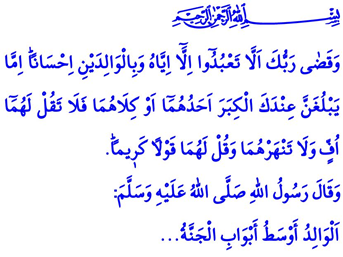 بِسْمِ اللّٰهِ الرَّحْمٰنِ الرَّحِيمِ
وَقَضٰى رَبُّكَ اَلَّا تَعْبُدُٓوا اِلَّٓا اِيَّاهُ وَبِالْوَالِدَيْنِ اِحْسَانًاۜ اِمَّا
يَبْلُغَنَّ عِنْدَكَ الْكِبَرَ اَحَدُهُمَٓا اَوْ كِلَاهُمَا فَلَا تَقُلْ لَهُمَٓا
اُفٍّ وَلَا تَنْهَرْهُمَا وَقُلْ لَهُمَا قَوْلًا كَر۪يمًاۜ.
وَقَالَ رَسُولُ اللّٰهِ صَلَّى اللّٰهُ عَلَيْهِ وَسَلَّمَ:
اَلْوَالِدُ أَوْسَطُ أَبْوَابِ الْجَنَّةُ...